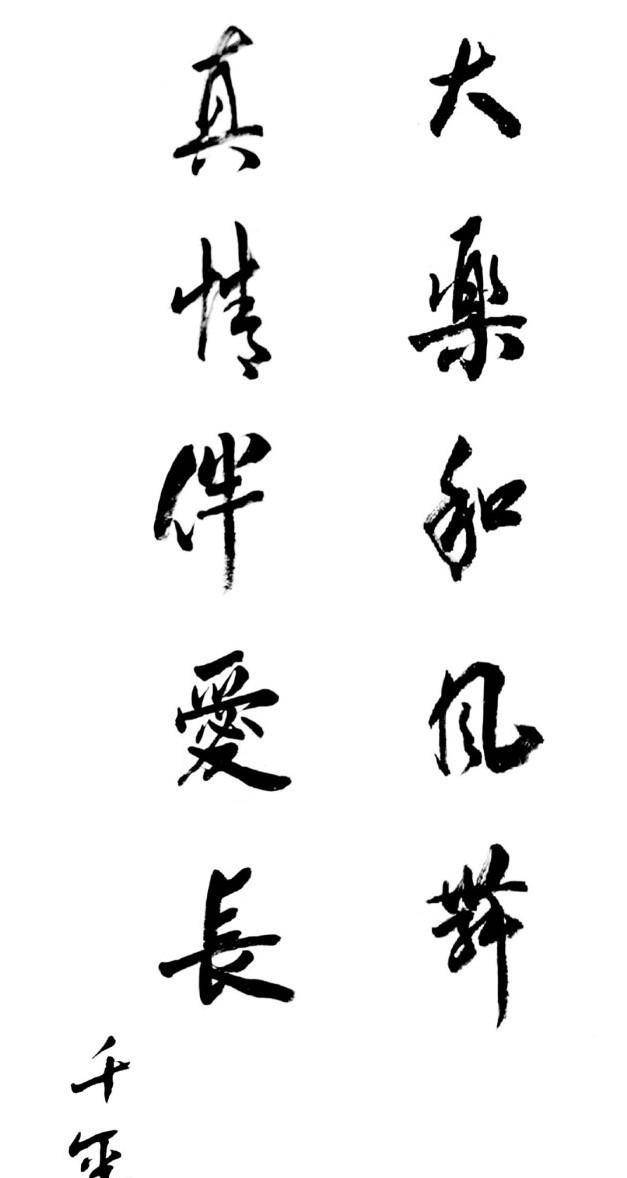 大樂和风舞
真情伴愛長
千